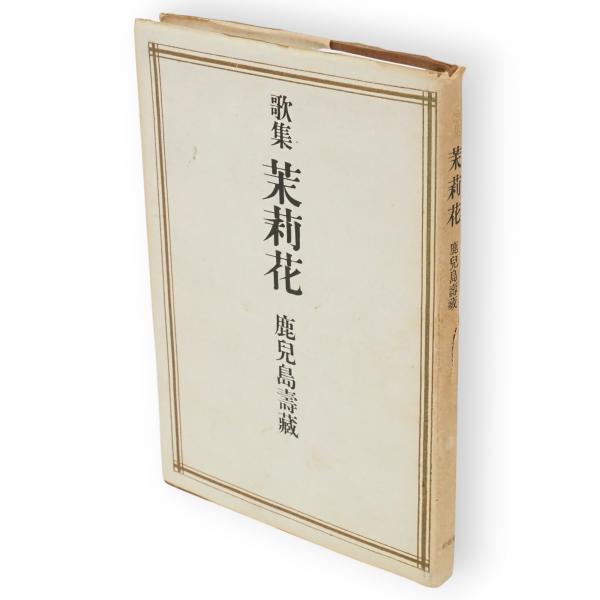 歌集 茉莉花 鹿兒島壽藏
茉莉花 鹿兒島壽藏